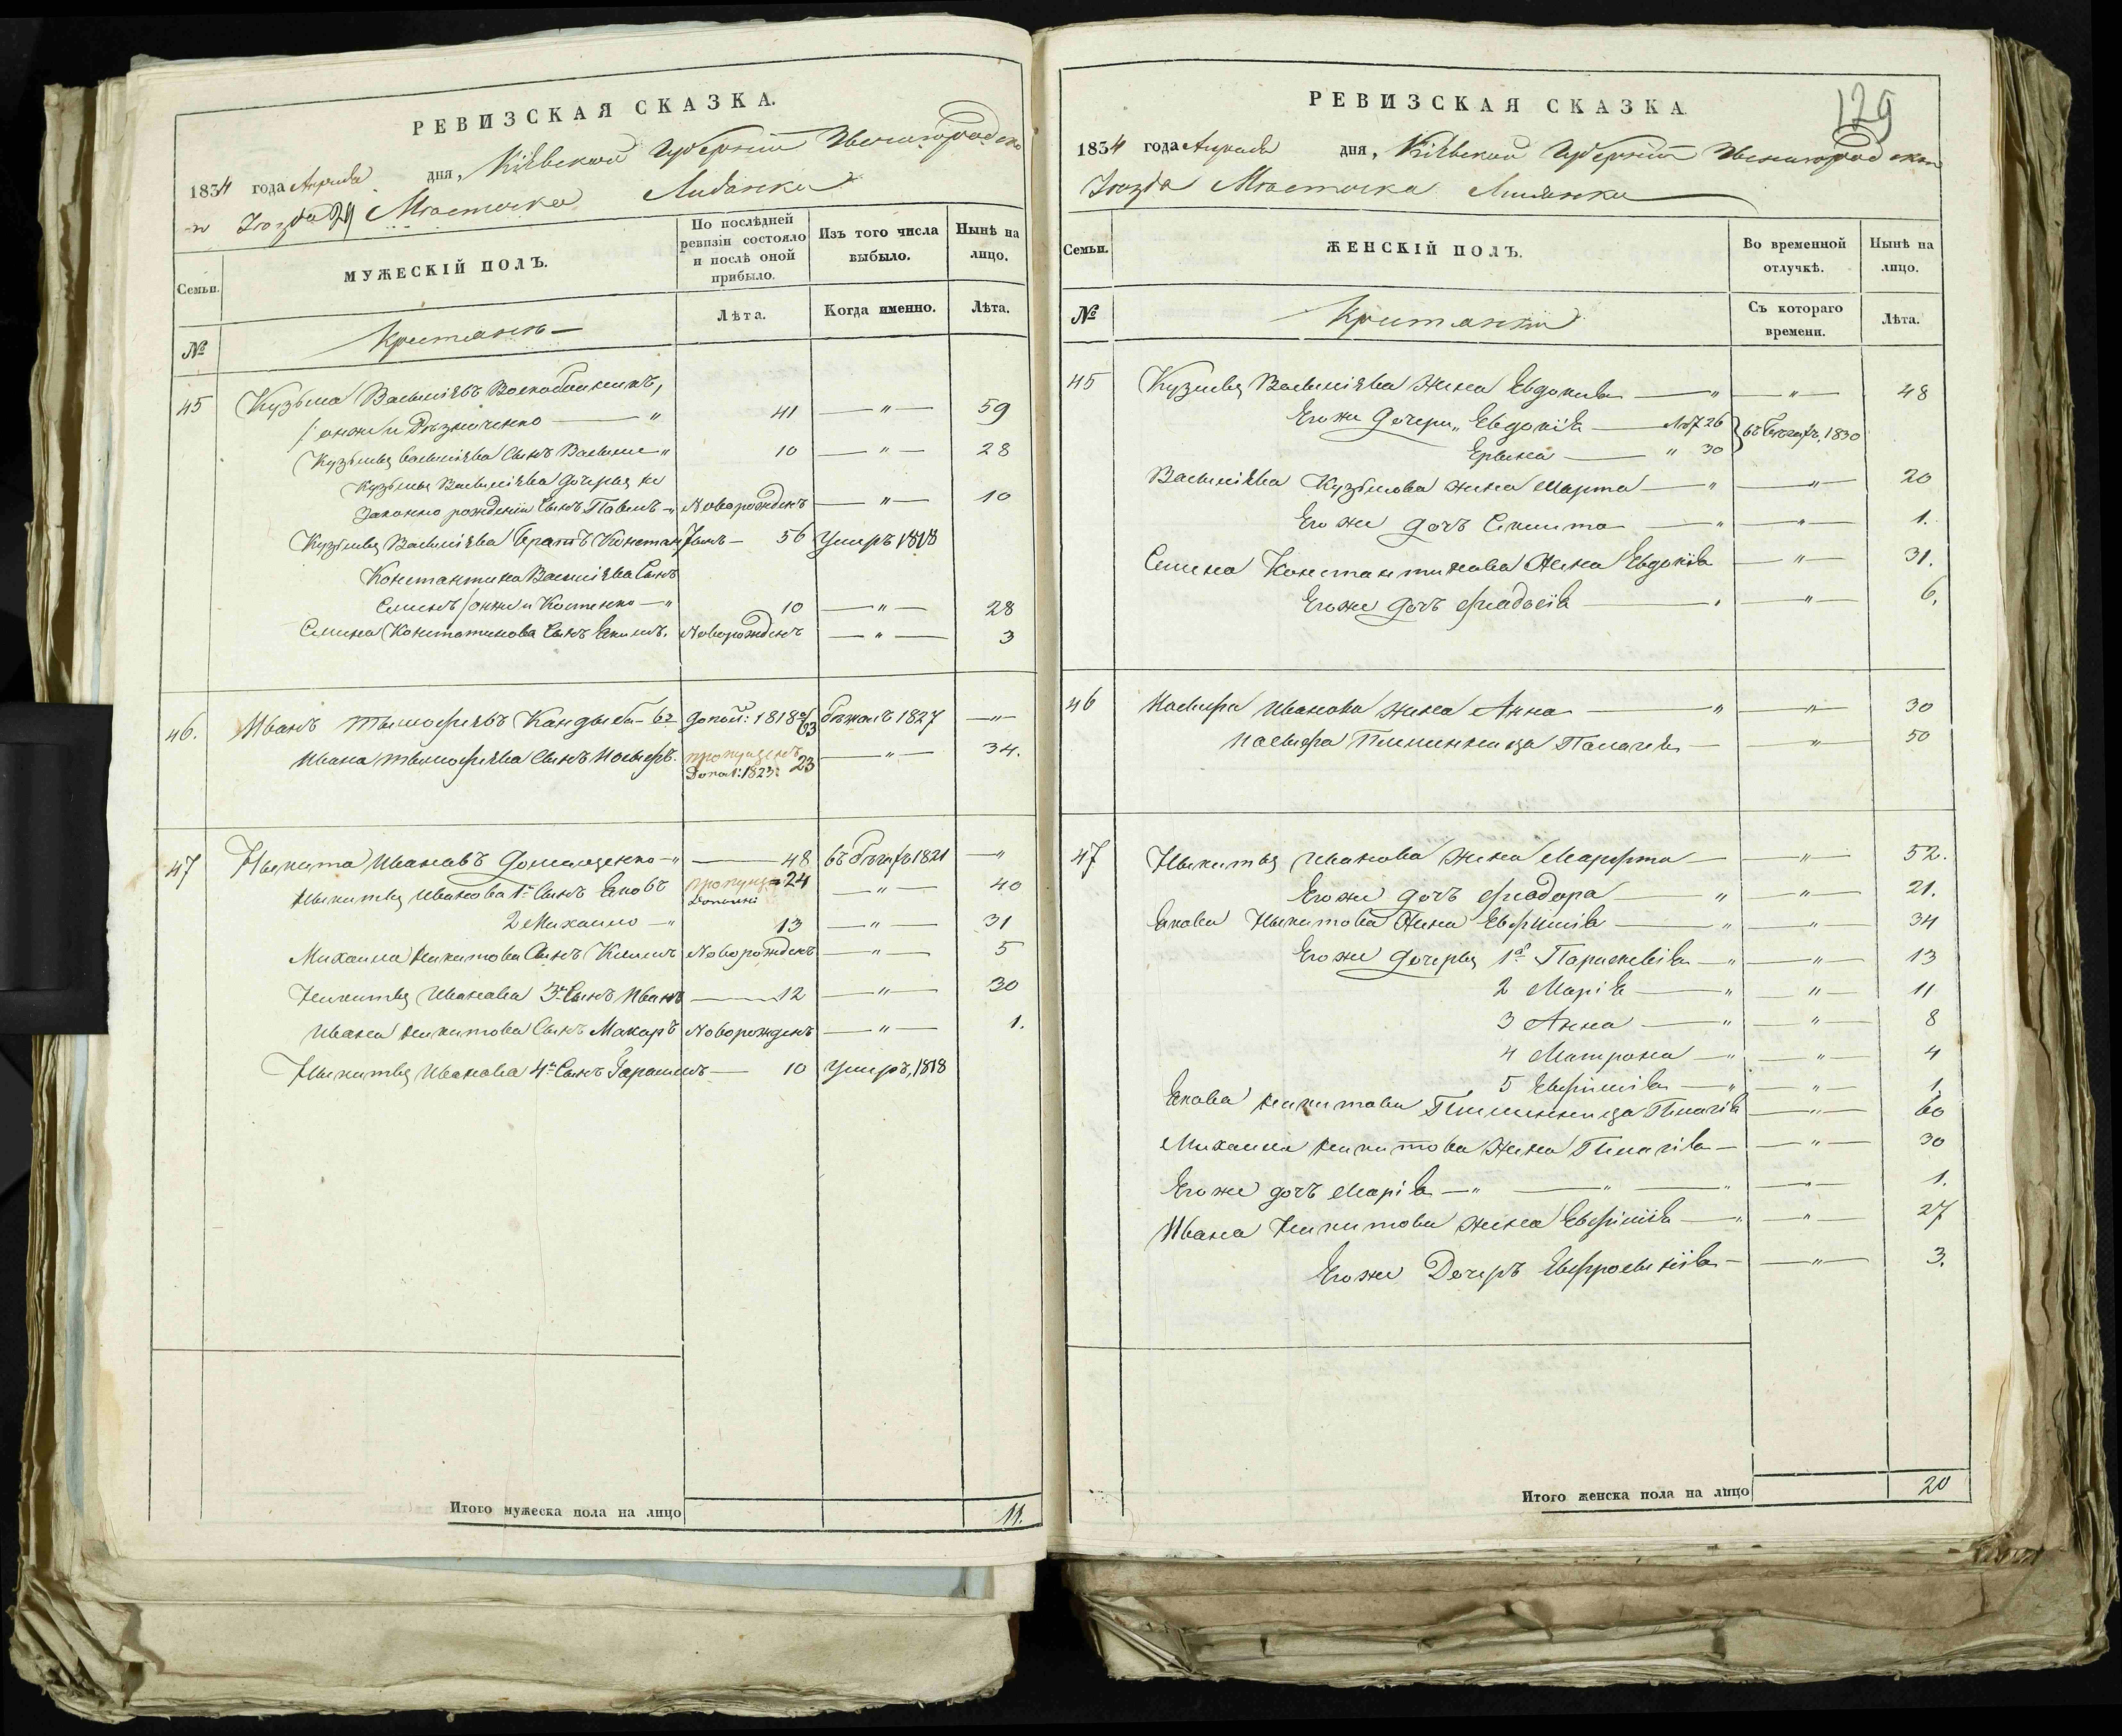 РЕВИЗСКАЯ СКАЗКА.
1834 года Апреля дня, Кіевской Губерніи Звенигородска
го Уезда Мѣстечка Лисянки
Семьи.
МУЖЕСКІЙ ПОЛЪ.
По послѣдней ревизіи состояло и послѣ оной прибыло.
Изъ того числа выбыло.
Нынѣ на лицо.
№
Крестьянъ
Лѣта.
Когда именно.
Лѣта.
45 Кузьма Васильевъ Воскобойникъ,
/: онже и Дѣзниченко — " 41 — " — 59
Кузьмы Васильева Сынъ Василь " 10 — " — 28
Кузьмы Васильева дочеры не
законно рожденій Сынъ Павелъ " Новорожденъ — " — 10
Кузьмы Васильева братъ Константинъ — 56 Умеръ 1818
Константина Васильева Сынъ
Семенъ /онже и Костенко — " 10 — " — 28
Семена Константинова Сынъ Екимъ. Новорожденъ — " — 3
46. Иванъ Тимофеевъ Кандыба 62 допол: 1818 63 бѣжалъ 1827 — " —
Ивана Тимофеева Сынъ Иосифъ. пропущенъ 23 — " — 34.
Допол: 1823:
47 Никита Ивановъ Домащенко " — 48 въ бегахъ 1821 — "
Никиты Иванова 1й Сынъ Яковъ пропущ = 24 — " — 40
2 Михайло — " 13 — " — 31
Михаила Никитова Сынъ Климъ Новорожденъ — " — 5
Никиты Иванова 3й Сынъ Иванъ — 12 — " — 30
Ивана Никитова Сынъ Макаръ Новорожденъ — " — 1.
Никиты Иванова 4й Сынъ Гарасимъ — 10 Умеръ, 1818
Итого мужеска пола на лицо 11.
129
РЕВИЗСКАЯ СКАЗКА
1834 года Апреля дня, Кіевской Губерніи Звенигородскаго
Уезда Мѣстечка Лисянки
Семьи.
ЖЕНСКІЙ ПОЛЪ.
Во временной отлучкѣ.
Нынѣ на лицо.
№
Крестьянки
Съ котораго времени.
Лѣта.
45 Кузьмы Васильева жена Евдокия — " — " — 48
Его же Дочери " Евдокія — лѣт 26 } въ бегахъ, 1830
Ерына — " 30
Василія Кузьмова жена Марта — " — " — 20
Его же дочъ — " — " — 1.
Семена Константинова жена Евдокія — " — 31.
Его же дочъ Феодосія — " — " — 6.
46 Иосифа Иванова жена Анна — " — " — 30
Иосифа Племенница Палагея — " — 50
47 Никиты Иванова жена Марфта — " — 52.
Его же дочъ Феодора — " — " — 21.
Якова Никитова жена Евфимія — " — " — 34
Его же дочеры 1я Параскевія — " — " — 13
2 Марія — " — " — 11
3 Анна — " — " — 8
4 Матрона — " — " — 4
5 Евфимія — " — " — 1.
Якова Никитова Племенница Пелагія — " — 60
Михаила Никитова жена Пелагія — " — 30
Его же дочъ Марія — " — " — " — 1.
Ивана Никитова жена Евфимія — " — " — 27
Его же Дочеръ Евфросинія — " — 3.
Итого женска пола на лицо 20